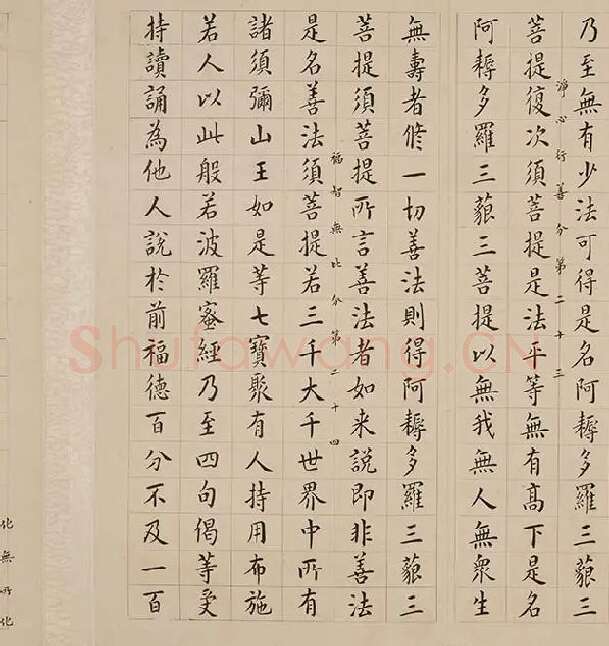 乃至無有少法可得是名阿耨多羅三藐三
淨心行善分第二十三
菩提復次須菩提是法平等無有高下是名
阿耨多羅三藐三菩提以無我無人無衆生
無壽者修一切善法則得阿耨多羅三藐三
菩提須菩提所言善法者如来說即非善法
福智無比分第二十四
是名善法須菩提若三千大千世界中所有
諸須彌山王如是等七寶聚有人持用布施
若人以此般若波羅蜜經乃至四句偈等受
持讀誦為他人說於前福德百分不及一百
化無所化
Shufawang.CN